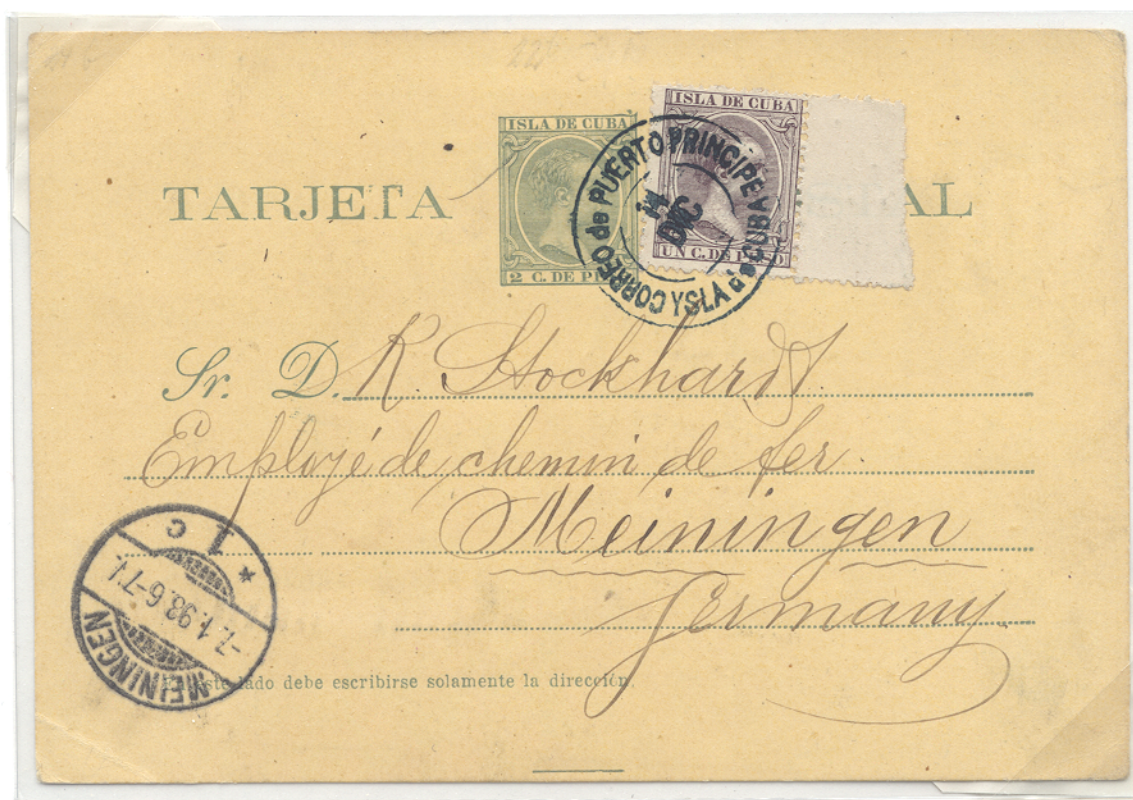 ISLA DE CUBA
ISLA DE CUBA
TARJETA AL
2 C. DE P
UN C. DE PESO
CORREO de PUERTO PRINCIPE
YSLA de CUBA
14
DIC
Sr. D. R. Stockhardt.
Employé de chemin de fer.
Meiningen
Germany.
MEININGEN
-7.1.93.6-7V.
* 1 c
este lado debe escribirse solamente la dirección.